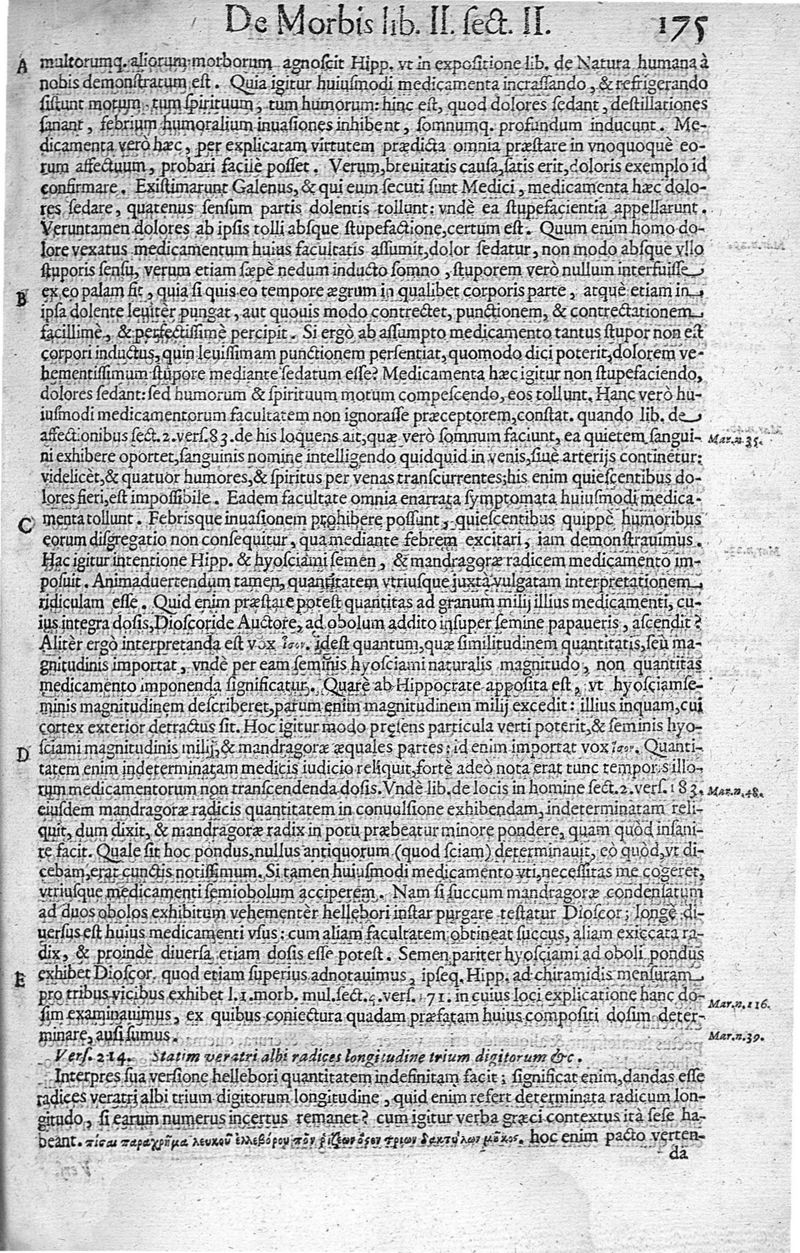 De Morbis lib. II. sect. II. 175
A multorumq. aliorum morborum agnoscit Hipp. vt in expositione lib. de Natura humana à
nobis demonstratum est. Quia igitur huiusmodi medicamenta incrassando, & refrigerando
sistunt motum tum spirituum, tum humorum: hinc est, quod dolores sedant, destillationes
sanant, febrium humoralium inuasiones inhibent, somnumq. profundum inducunt. Me-
dicamenta verò hæc, per explicatam virtutem prædicta omnia præstare in vnoquoquè eo-
rum affectuum, probari facilè posset. Verum, breuitatis causa, satis erit, doloris exemplo id
confirmare. Existimarunt Galenus, & qui eum secuti sunt Medici, medicamenta hæc dolo-
res sedare, quatenus sensum partis dolentis tollunt: vndè ea stupefacientia appellarunt.
Veruntamen dolores ab ipsis tolli absque stupefactione, certum est. Quum enim homo do-
lore vexatus medicamentum huius facultatis assumit, dolor sedatur, non modo absque vllo
stuporis sensu, verum etiam sæpè nedum inducto somno, stuporem verò nullum interfuisse
B ex eo palam fit, quia si quis eo tempore ægrum in qualibet corporis parte, atquè etiam in
ipsa dolente leuitèr pungat, aut quouis modo contrectet, punctionem, & contrectationem
facillimè, & perfectissimè percipit. Si ergò ab assumpto medicamento tantus stupor non est
corpori inductus, quin leuissimam punctionem persentiat, quomodo dici poterit, dolorem ve-
hementissimum stupore mediante sedatum esse? Medicamenta hæc igitur non stupefaciendo,
dolores sedant: sed humorum & spirituum motum compescendo, eos tollunt. Hanc verò hu-
iusmodi medicamentorum facultatem non ignorasse præceptorem, constat. quando lib. de
affectionibus sect. 2. vers. 83. de his loquens ait, quæ verò somnum faciunt, ea quietem sangui- Mar. n. 35.
ni exhibere oportet, sanguinis nomine intelligendo quidquid in venis, siuè arterijs continetur:
videlicèt, & quatuor humores, & spiritus per venas transcurrentes; his enim quiescentibus do-
lores fieri, est impossibile. Eadem facultate omnia enarrata symptomata huiusmodi medica-
C menta tollunt. Febrisque inuasionem prohibere possunt, quiescentibus quippè humoribus
eorum disgregatio non consequitur, qua mediante febrem excitari, iam demonstrauimus.
Hac igitur intentione Hipp. & hyosciami semen, & mandragoræ radicem medicamento im-
posuit. Animaduertendum tamen, quantitatem vtriusque juxtà vulgatam interpretationem
ridiculam esse. Quid enim præstare potest quantitas ad granum milij illius medicamenti, cu-
ius integra dosis, Dioscoride Auctore, ad obolum addito insuper semine papaueris, ascendit?
Alitèr ergò interpretanda est vox ἴσον. idest quantum, quæ similitudinem quantitatis, seù ma-
gnitudinis importat, vndè per eam seminis hyosciami naturalis magnitudo, non quantitas
medicamento imponenda significatur. Quarè ab Hippocrate apposita est, vt hyosciamse-
minis magnitudinem describeret, parum enim magnitudinem milij excedit: illius inquam, cui
cortex exterior detractus sit. Hoc igitur modo præsens particula verti poterit, & seminis hyo-
D sciami magnitudinis milij, & mandragoræ æquales partes: id enim importat vox ἴσον. Quanti-
tatem enim indeterminatam medicis iudicio reliquit, fortè adeò nota erat tunc temporis illo-
rum medicamentorum non transcendenda dosis. Vndè lib. de locis in homine sect. 2. vers. 183. Mar. n. 48.
eiusdem mandragoræ radicis quantitatem in conuulsione exhibendam, indeterminatam reli-
quit, dum dixit, & mandragoræ radix in potu præbeatur minore pondere, quam quòd insani-
re facit. Quale sit hoc pondus, nullus antiquorum (quod sciam) determinauit, eò quòd, vt di-
cebam, erat cunctis notissimum. Si tamen huiusmodi medicamento vti, necessitas me cogeret,
vtriusque medicamenti semiobolum acciperem. Nam si succum mandragoræ condensatum
ad duos obolos exhibitum vehementèr hellebori instar purgare testatur Dioscor; longè di-
uersus est huius medicamenti vsus: cum aliam facultatem obtineat succus, aliam exiccata ra-
dix, & proindè diuersa etiam dosis esse potest. Semen pariter hyosciami ad oboli pondus
E exhibet Dioscor. quod etiam superius adnotauimus, ipseq. Hipp. ad chiramidis mensuram
pro tribus vicibus exhibet l. 1. morb. mul. sect. 5. vers. 171. in cuius loci explicatione hanc do- Mar. n. 116.
sim examinauimus, ex quibus coniectura quadam præfatam huius compositi dosim deter-
minare, ausi sumus. Mar. n. 39.
Vers. 214. Statim veratri albi radices longitudine trium digitorum &c.
Interpres sua versione hellebori quantitatem indefinitam facit; significat enim, dandas esse
radices veratri albi trium digitorum longitudine, quid enim refert determinata radicum lon-
gitudo, si earum numerus incertus remanet? cum igitur verba græci contextus ità sese ha-
beant. πῖσαι παραχρῆμα λευκοῦ ἐλλεβόρου τῶν ῥιζέων ὅσον τριῶν δακτύλων μῆκος. hoc enim pacto verten-
da